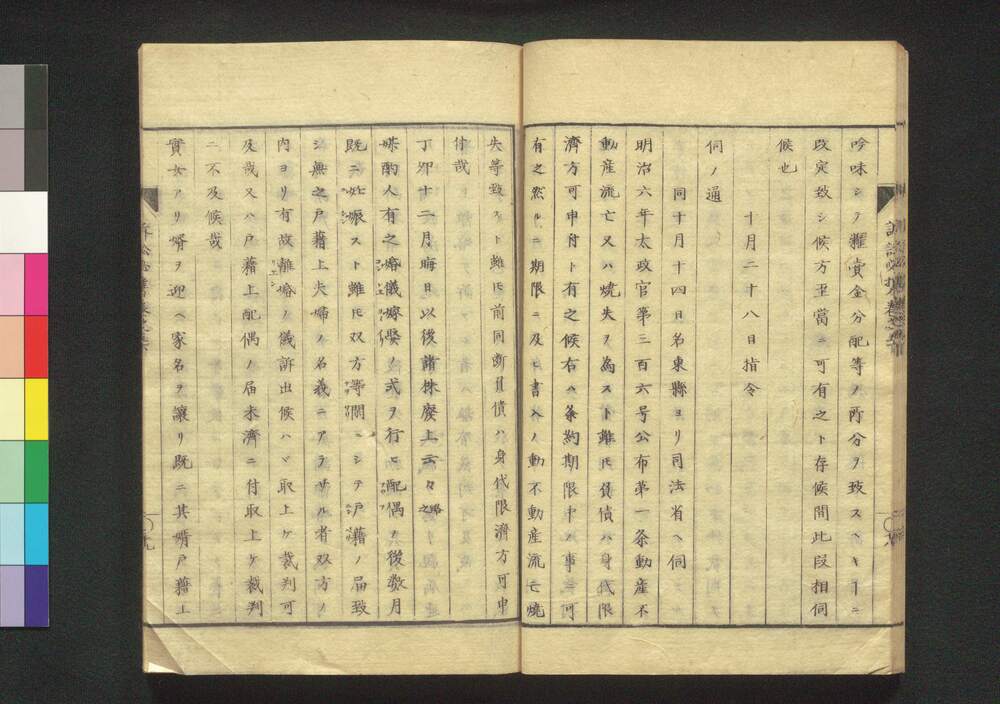 吟味シテ糴賣金分配等ノ所分ヲ致スヘキニ
改定致シ候方至當ニ可有之ト存候間此段相伺
候也
十月二十八日指令
伺ノ通
同十月十四日名東縣ヨリ司法省ヘ伺
明治六年太政官第三百六号公布第一条動産不
動産流亡又ハ燒失ヲ為スト雖𪜈負債ハ身代限
濟方可申付ト有之候右ハ条約期限中ノ事ニ可
有之然ルニ期限ニ及ヒ書入ノ動不動産流亡燒
失等致スト雖𪜈前同斷負債ハ身代限濟方可申
付哉
丁卯十二月晦日以後諸株廢止云々略之
媒酌人有之婚儀嫁娶ノ式ヲ行ヒ配偶ノ後数月
既ニ妊娠スト雖𪜈双方等閑ニシテ戸籍ノ届致
シ無之戸籍上夫婦ノ名義ニアラサル者双方ノ
内ヨリ有故離婚ノ儀訴出候ハヾ取上ケ裁判可
及哉又ハ戸籍上配偶ノ届未濟ニ付取上ケ裁判
ニ不及候哉
實女アリ婿ヲ迎ヘ家名ヲ讓リ既ニ其婿戸籍上